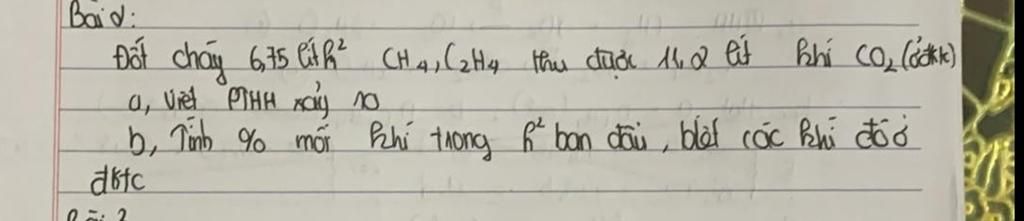 Bài 2:
Đốt cháy 6,75 lít h² CH4, C2H4 thu được 11,2 lít khí CO2 (ở đktc)
a, Viết PTHH xảy ra
b, Tính % mỗi khí trong h² ban đầu, biết các khí đo ở
đktc